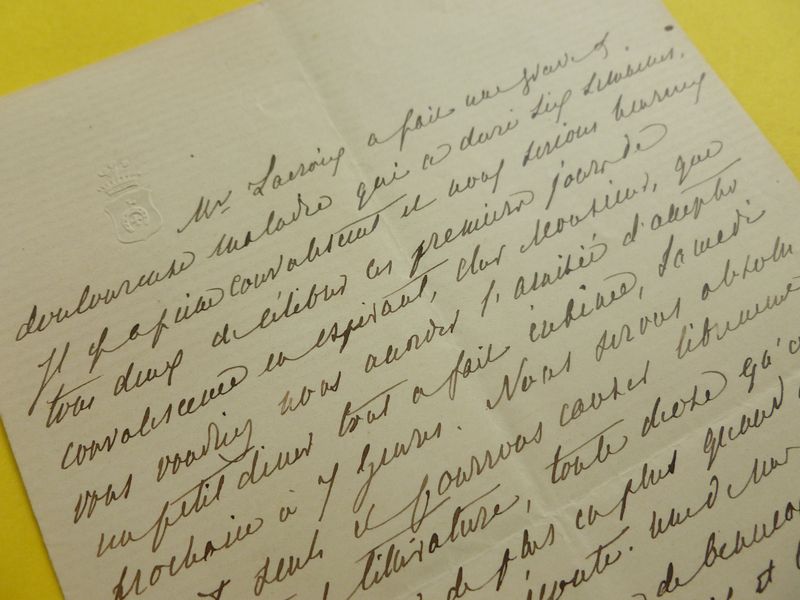 Mr Lacroix a fait une grave &
douloureuse maladie qui a duré six semaines.
Il y a peine convalescent et nous serions heureux
tous deux de célébrer ces premiers jours de
convalescence en espérant, cher Monsieur, que
vous voudrez nous accorder l'amitié d'accepter
un petit diner tout a fait intime, Samedi
prochain à 7 heures. Nous serons absolu
seuls et pourrons causer librement
littérature, toute chose qu'
de plus en plus quand
de beaucou
et